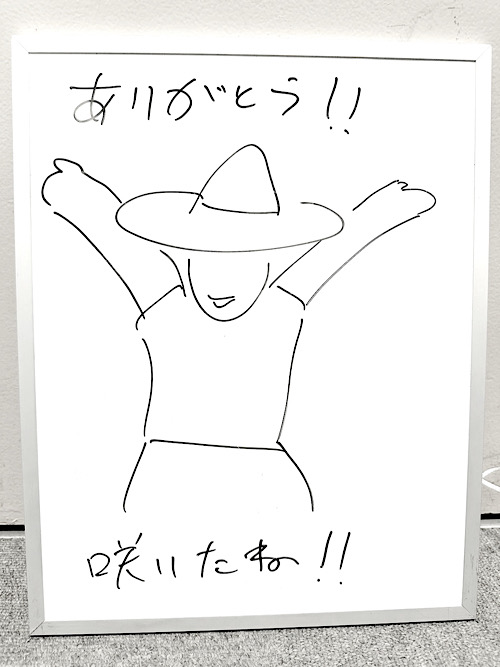 ありがとう!!
咲いたね!!